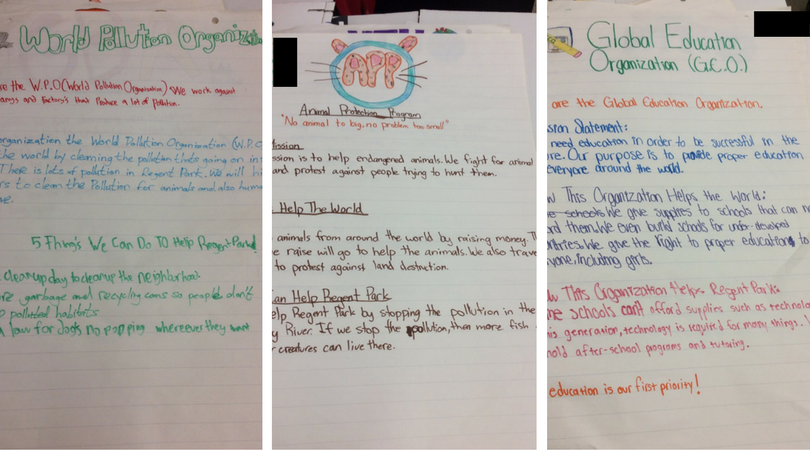 World Pollution Organiza
re the W.P.O (World Pollution Organization). We work against
and factory's that Produce a lot of pollution.
organization the World Pollution Organization (W.P.O
the world by cleaning the pollution thats going on in
There is lots of pollution in Regent Park. We will
rs to clean the Pollution for animals and also
5 Thing's We Can DO TO Help Regent Park!
cleanup day to cleanup the neighborhood.
re garbage and recycling cans so people don't
polluted habitats
law for dogs no pooping whereever they want
APP
Animal Protection Program
"No animal to big, no problem too small"
Mission
ssion is to help endangered animals. We fight for animal
and protest against people trying to hunt them.
Help The World
animals from around the world by raising money. T
e raise will go to help the animals. We also trave
to protest against land destruction.
an Help Regent Park
elp Regent Park by stopping the pollution in the
y River. If we stop the pollution, then more fish
r creatures can live there.
Global Education
Organization (G.E.O.)
are the Global Education Organization.
sion Statement:
need education in order to be successful in the
re. Our purpose is to provide proper education
everyone around the world.
w This Organization Helps the World:
schools We give supplies to schools that can n
rd them. We even build schools for under-developed
ntries. We give the right to proper education to
yone, including girls.
w This Organization Helps Regent Park:
me schools can't afford supplies such as technolo
is generation, technology is required for many things.
hold after-school programs and tutoring.
education is our first priority!